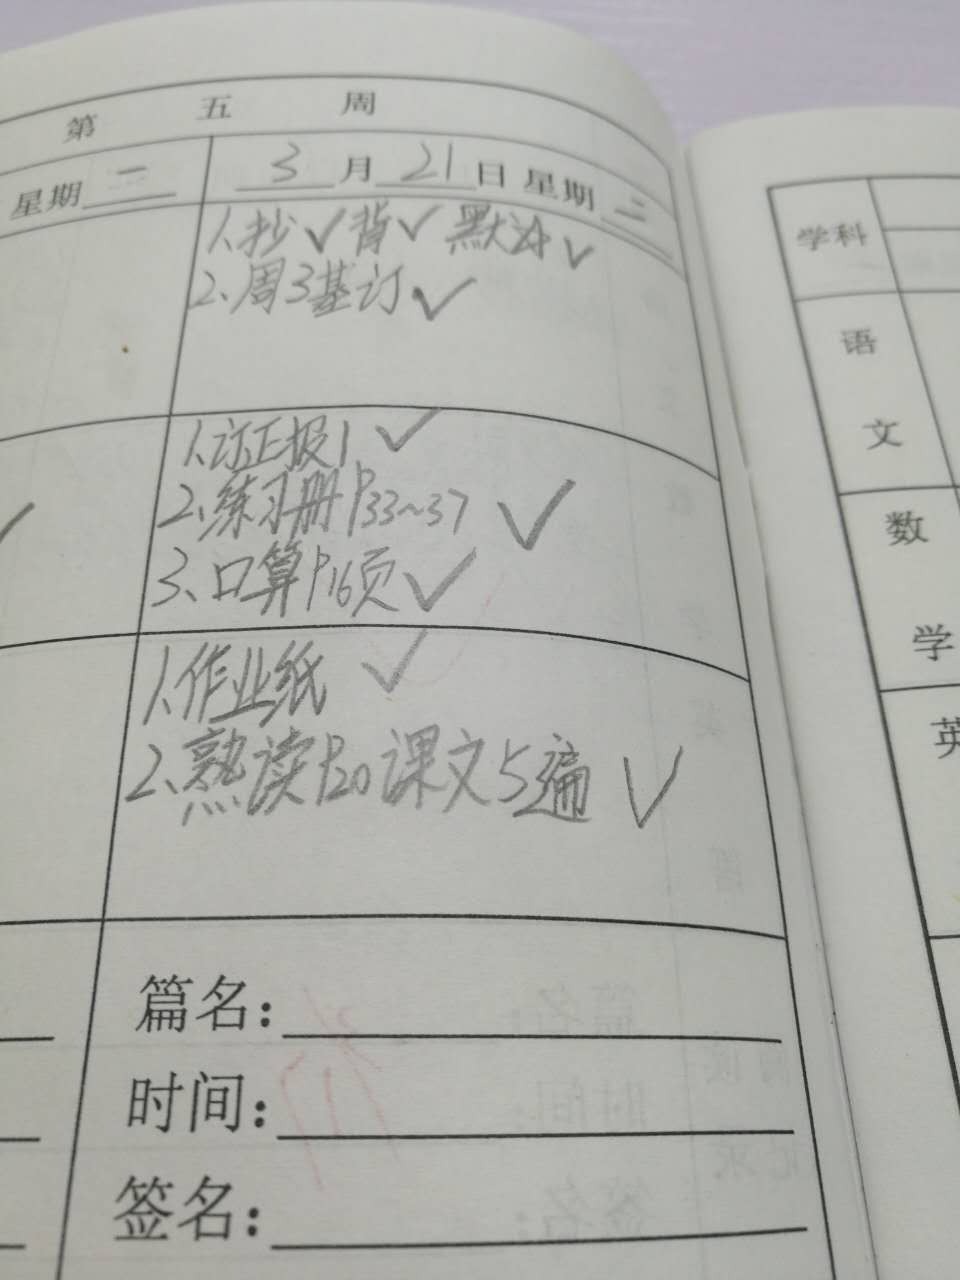 第 五 周
星期 一
3 月 21 日 星期 二
1、抄✓背✓ 默 ✓
2、周3基订✓
1、订正报1 ✓
2、练习册P33~37 ✓
3、口算P16页✓
1、作业纸 ✓
2、熟读P20课文5遍 ✓
篇名：
时间：
签名：
学科
语文
数学
英